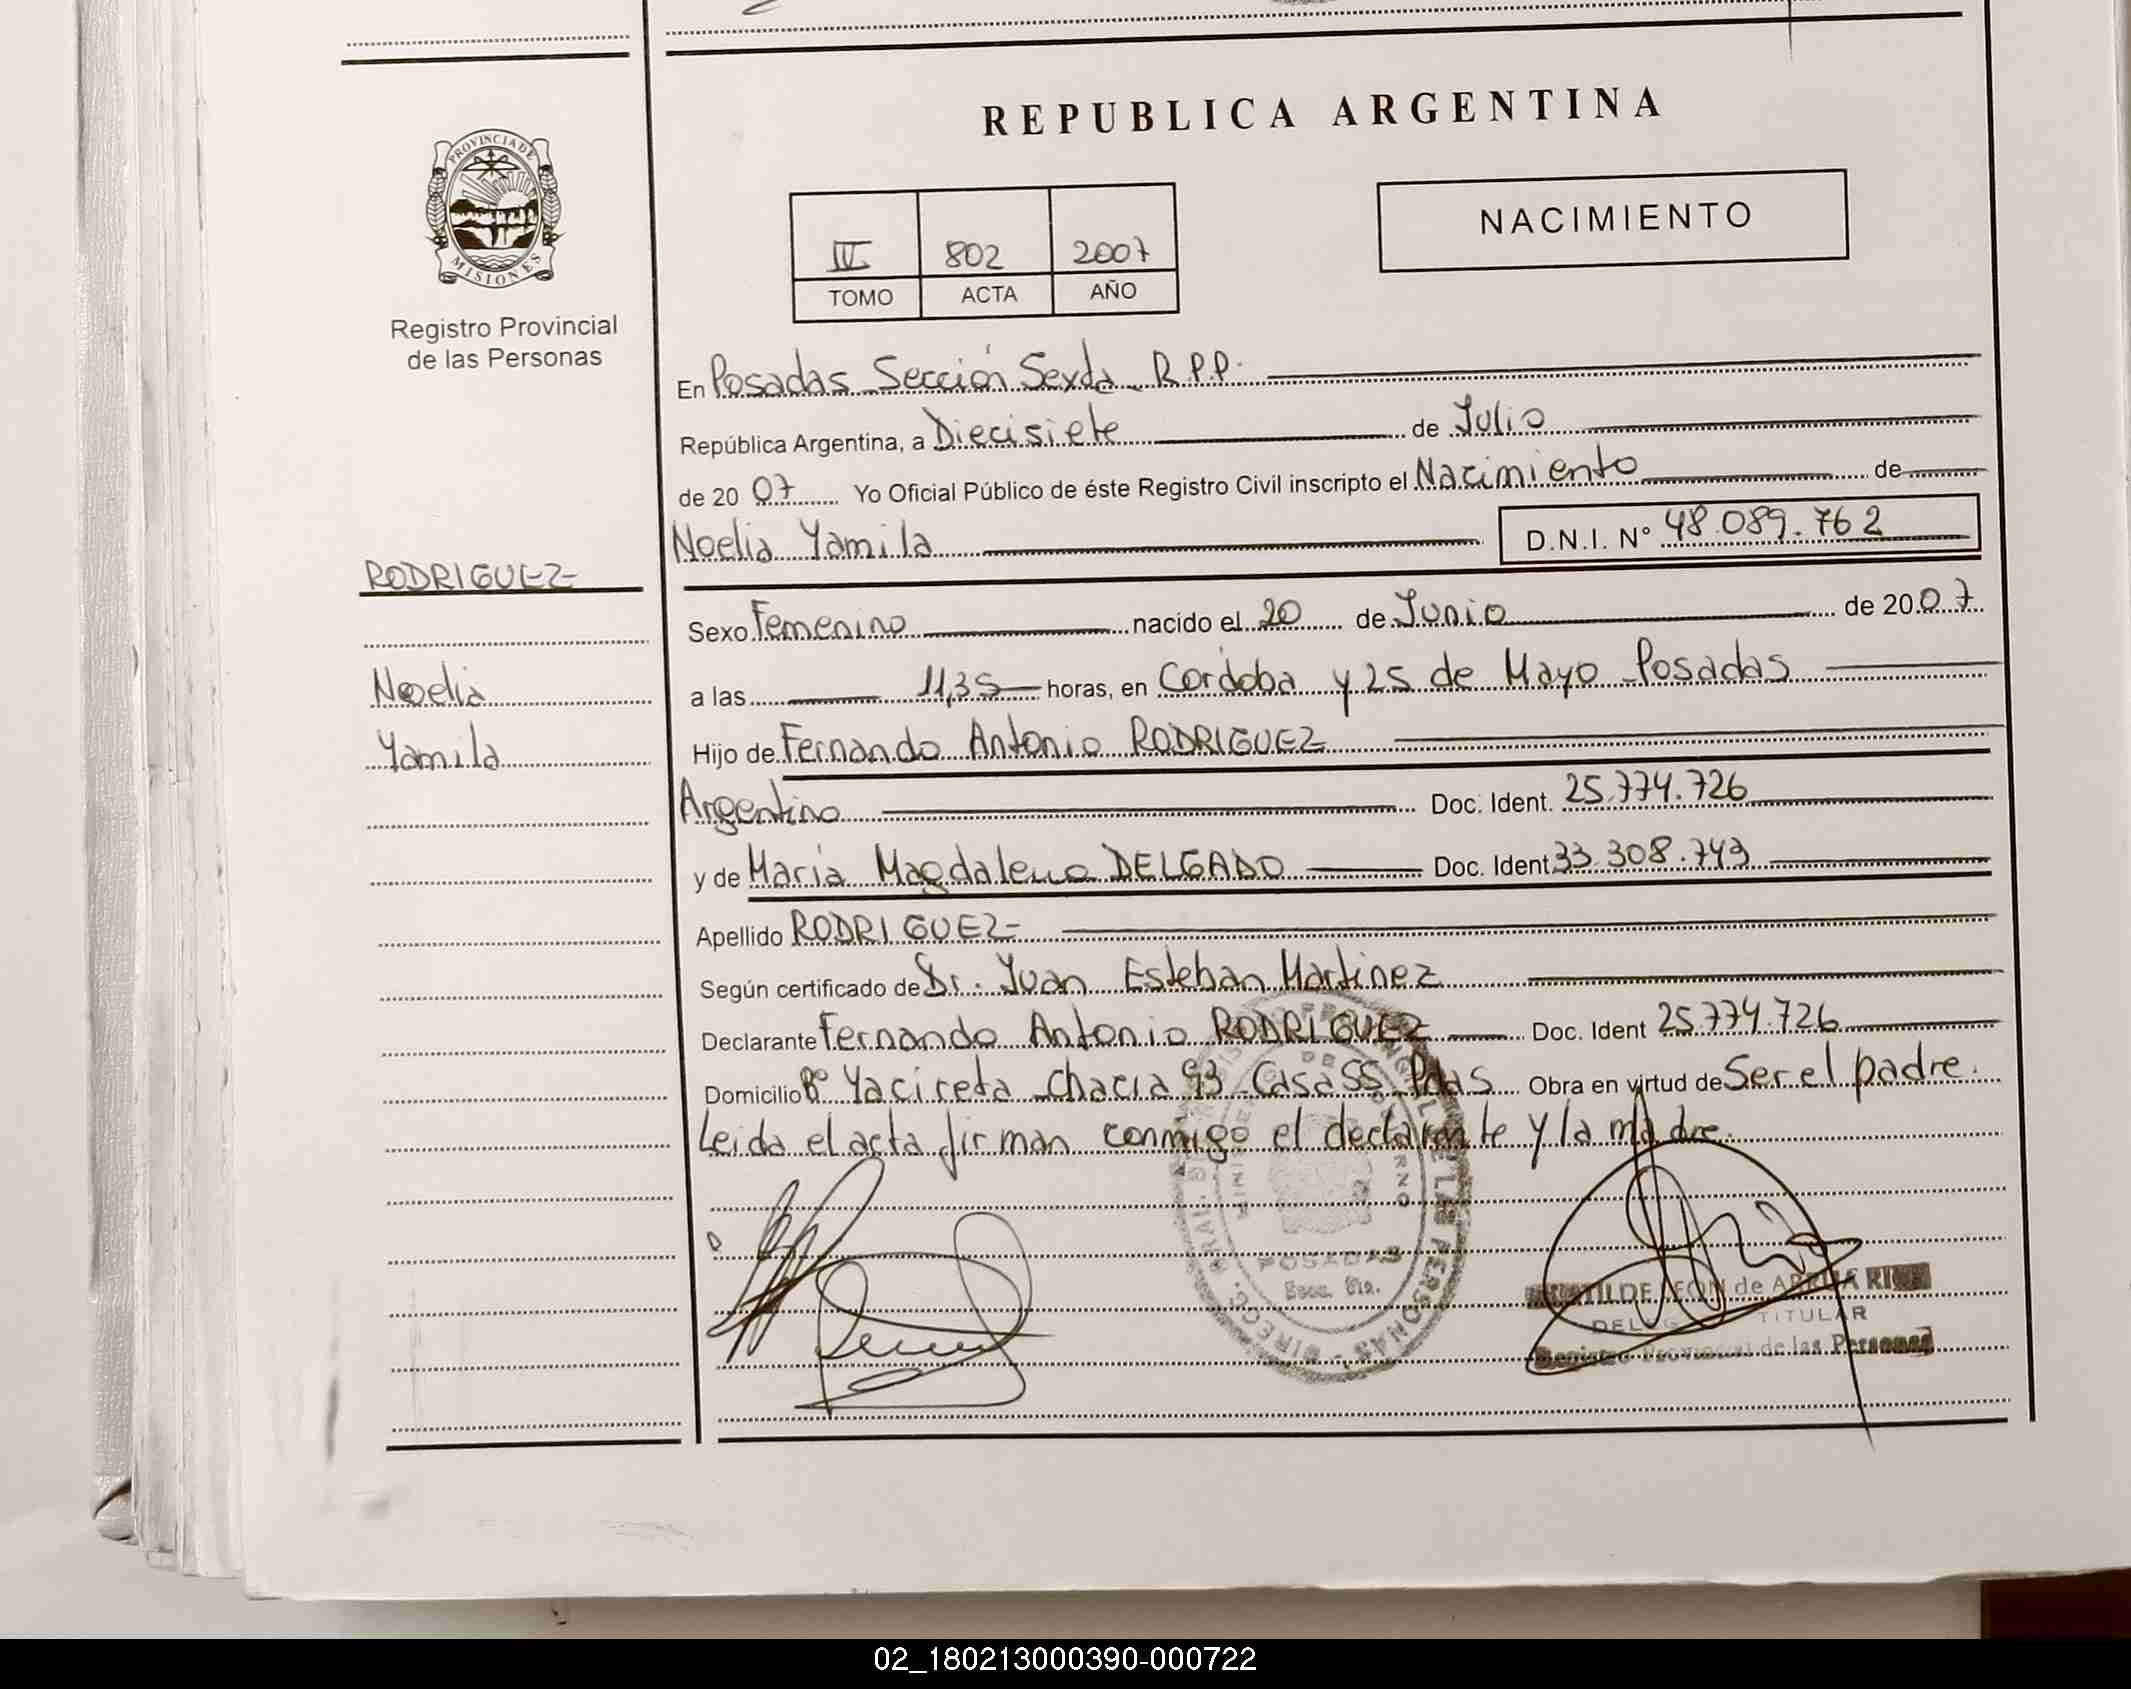 REPUBLICA ARGENTINA
PROVINCIA DE
MISIONES
Registro Provincial
de las Personas
NACIMIENTO
802 2007
TOMO ACTA AÑO
En Posadas Sección Sexta R.P.P.
República Argentina, a Diecisiete de Julio
de 2007 Yo Oficial Público de éste Registro Civil inscripto el Nacimiento de
Noelia Yamila D.N.I. Nº 48.089.762
RODRIGUEZ
Noelia
Yamila
Sexo Femenino nacido el 20 de Junio de 2007
a las 11,35 horas, en Cordoba y 25 de Mayo Posadas
Hijo de Fernando Antonio RODRIGUEZ
Argentino Doc. Ident. 25.774.726
y de María Magdalena DELGADO Doc. Ident 33.308.749
Apellido RODRIGUEZ
Según certificado de Dr. Juan Esteban Martinez
Declarante Fernando Antonio RODRIGUEZ Doc. Ident 25.774.726
Domicilio Bº Yacireta Chacra 93 Casa 55 Pdas Obra en virtud de Ser el padre.
Leida el acta firman conmigo el declarante y la madre.
POSADAS
Secc. 6ta.
LEON de
TITULAR
Registro Provincial de las Personas
02_180213000390-000722